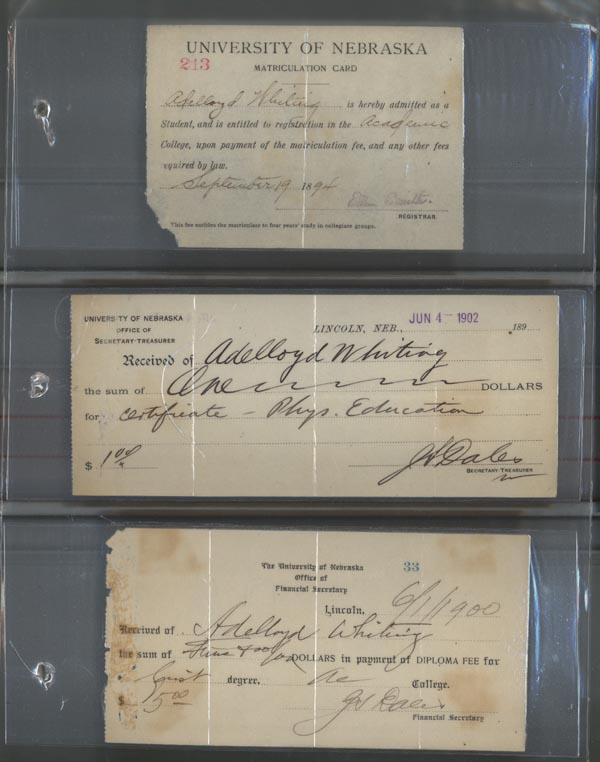 UNIVERSITY OF NEBRASKA
213
MATRICULATION CARD
Adelloyd Whiting is hereby admitted as a
Student, and is entitled to registration in the Academic
College, upon payment of the matriculation fee, and any other fees
equired by law.
September 19 1894
REGISTRAR.
This fee entitles the matriculate to four years' study in collegiate groups.
UNIVERSITY OF NEBRASKA
OFFICE OF
SECRETARY-TREASURER
LINCOLN, NEB., JUN 4 - 1902 189
Received of Adelloyd Whiting
the sum of One DOLLARS
for certificate - Phys. Education
$ 1.00
J S Dales
SECRETARY-TREASURER
The University of Nebraska 33
Office of
Financial Secretary
Lincoln, 6/1/1900
Received of Adelloyd Whiting
the sum of DOLLARS in payment of DIPLOMA FEE for
first degree, Ac College.
$ 5.00 J S Dales
Financial Secretary